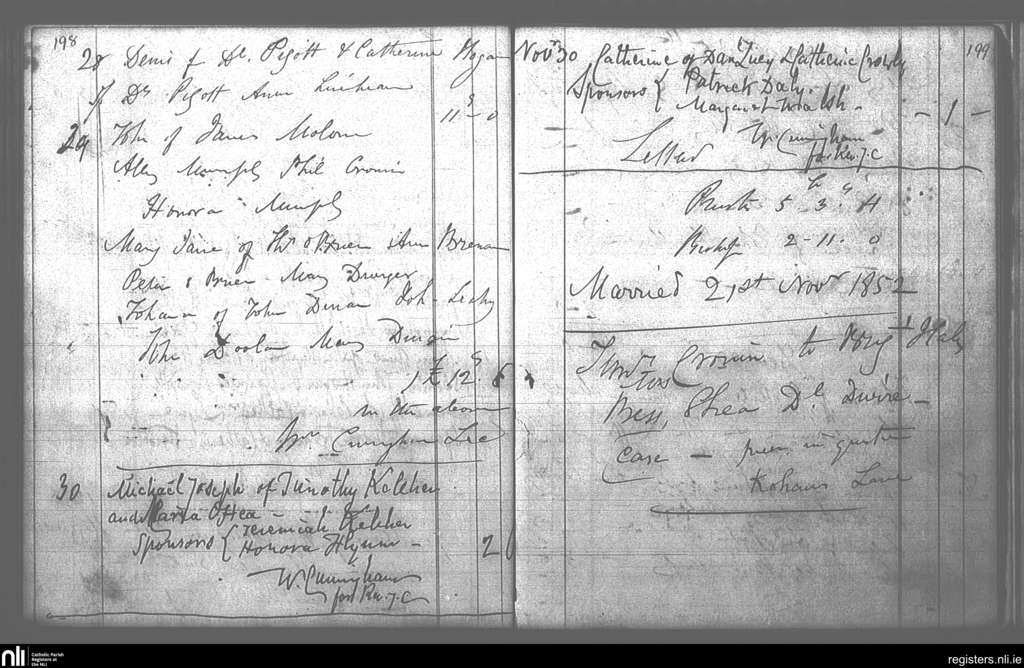 198
28 Denis of Dl. Pigott & Catherine Hogan
Ds Pigott Ann Linehan
11 - 0
29 John of James Molony
Alex Murphy Phil Cronin
Honora Murphy
Mary Jane of Ths O Brien & Ann Brenan
Peter O Brien Mary Dwyer
Johana of John Dinan Joh- Leahy
John Doolan Mary Dinan
1£ 12s 6
in the above
Wm Cunningham
30 Michael Joseph of Timothy Keleher
and Maria O'Hea -
Sponsors { Jeremiah Keleher
Honora Flynn -
2
W. Cunningham
for Rev. J. C
199
Novr 30 Catherine of Danl Lucy & Catherine Crowly
Sponsors { Patrick Daly.
Margaret Walsh -
- 1 -
W. Cunningham
for Rev. J. C
5 3 4
Bishop 2 - 11 - 0
Married 21st Novr 1852
Cronin to Haly
Press, Shea Dl Dwire -
Case -
Lane
nli Catholic Parish
Registers at
the NLI
registers.nli.ie